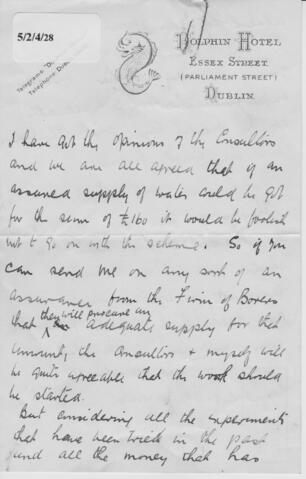 5/2/4/28
Telegrams "Do
Telephone Dub
DOLPHIN HOTEL
ESSEX STREET
(PARLIAMENT STREET)
DUBLIN.
I have got the opinions of the Consultors
and we are all agreed that if an
assured supply of water could be got
for the sum of £160 it would be foolish
not to go on with the scheme. So if you
can send me on any sort of an
assurance from the Firm of Borers
that they will procure an adequate supply for that
amount, the Consultors & myself will
be quite agreeable that the work should
be started.
But considering all the experiments
that have been tried in the past
and all the money that has